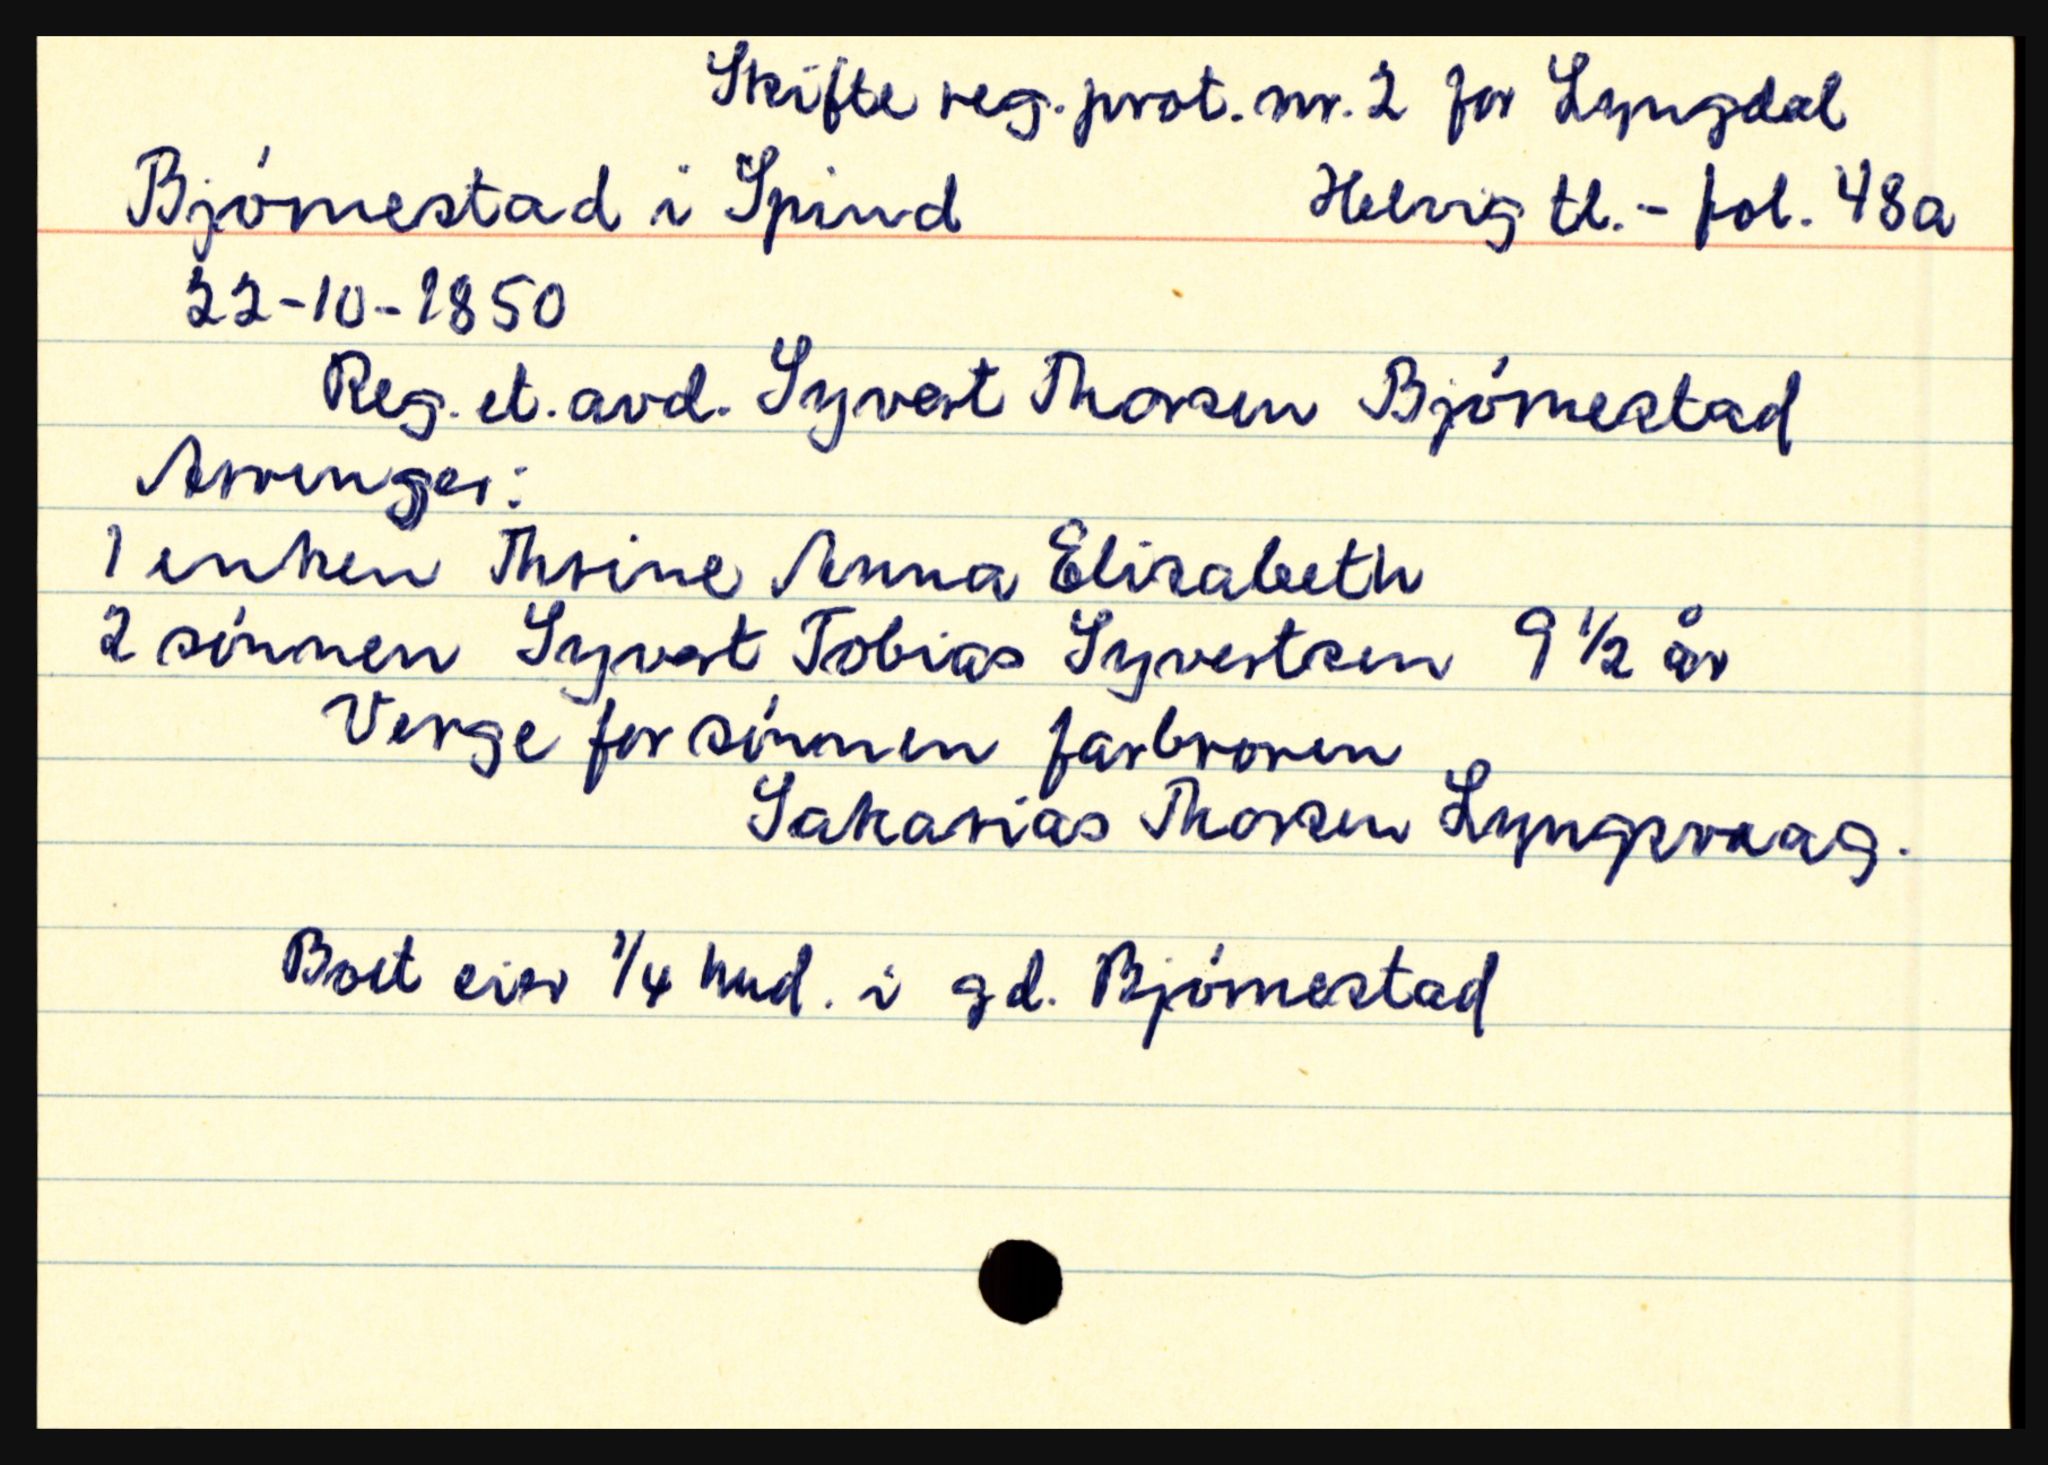 Skifte reg. prot. nr. 2 for Lyngdal
Bjørnestad i Spind Helvig tl. - fol. 48a
22-10-1850
Reg. et. avd. Syvert Thorsen Bjørnestad
Arvinger:
1 enken Thrine Anna Elisabeth
2 sønnen Syvert Tobias Syvertsen 9 1/2 år
Verge for sønnen farbroren
Sakarias Thorsen Lyngsvaag.
Boet eier 1/4 hud. i gd. Bjørnestad